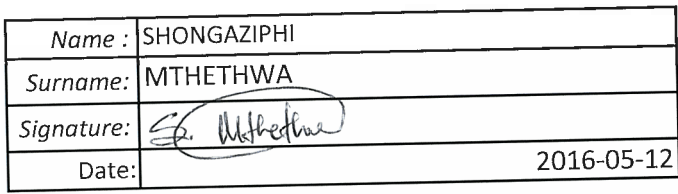 Name : SHONGAZIPHI
Surname: MTHETHWA
Signature: Mthethwa
Date: 2016-05-12